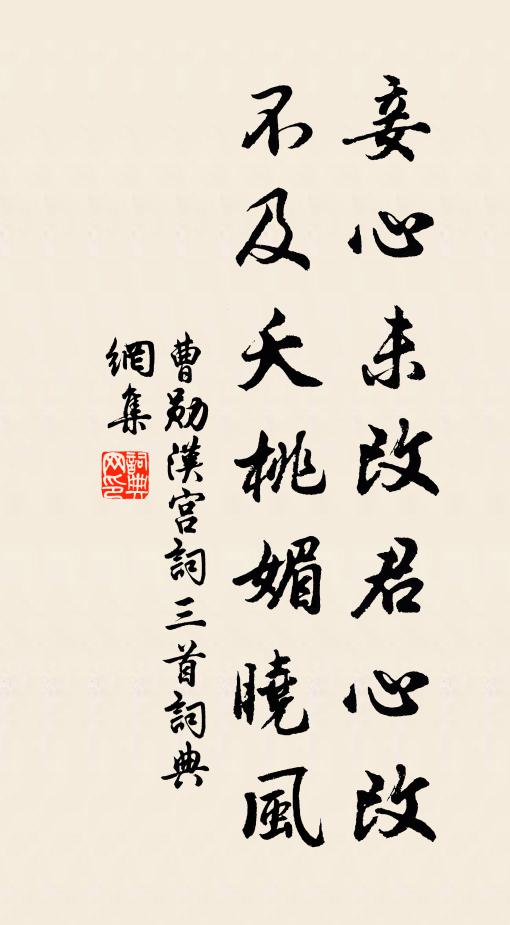 妾心未改君心改
不及夭桃媚曉風
曹勛漢宮詞三首詞典
網集
詞典網印